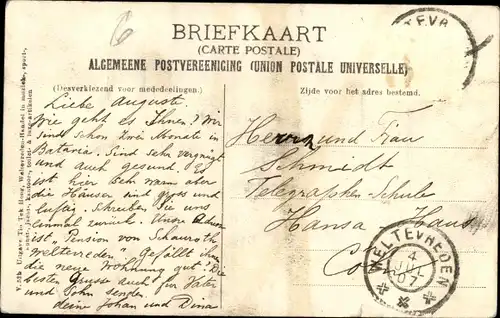 BRIEFKAART
(CARTE POSTALE)
ALGEMEENE POSTVEREENIGING (UNION POSTALE UNIVERSELLE)
(Desverkiezend voor mededeelingen.)
Zijde voor het adres bestemd.
Liebe August
Wie geht es Ihnen? Wir
sind schon zwei Monate in
Betavia. Sind sehr vergnügt
und auch gesund. Es
ist hier sehr warm aber
die Häuser sind gross und
luftig. Schreiben Sie uns
einmal zurück. Unsre Adresse
ist "Pension von Schauroth
Weltevreden". Gefällt ihnen
die neue Wohnung gut? Die
besten Grüsse auch für Vater
und John senden
deine Johan und Dina
Herrn und Frau
Schmidt
Telegraphen-Schule
Hansa Haus
WELTEVREDEN
4
JUL
07